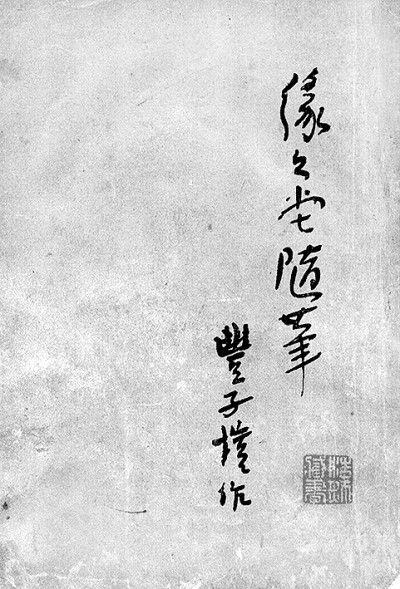 緣々堂隨筆
豐子愷作
藏書